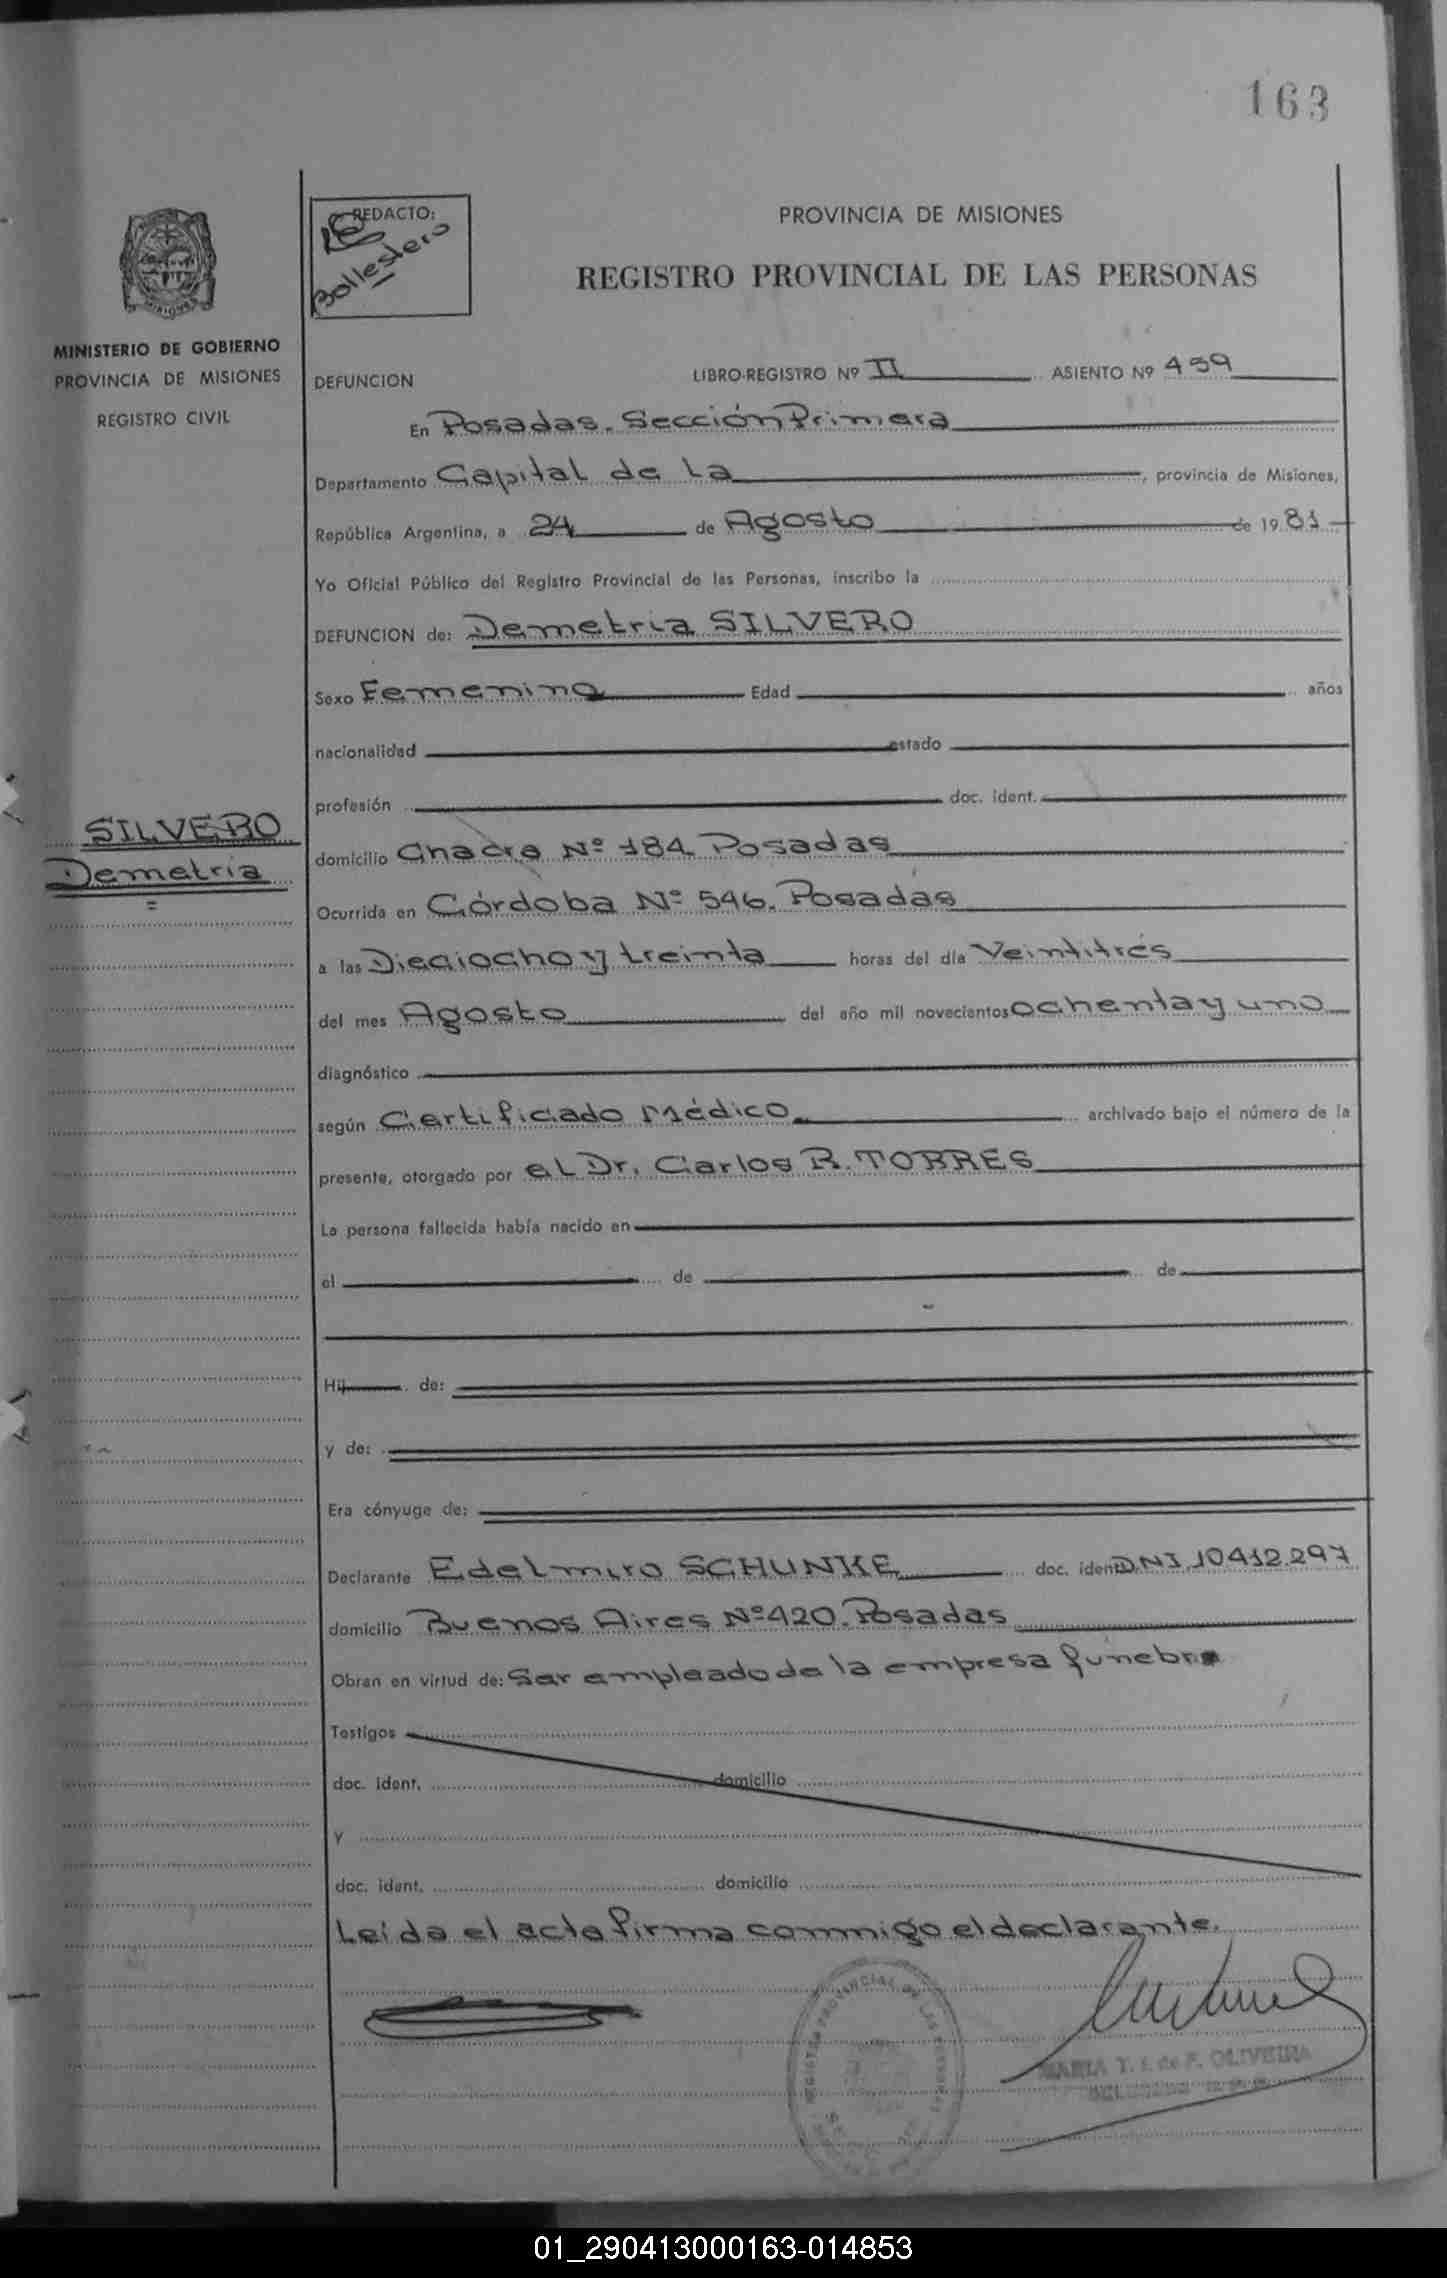 163
REDACTO:
Ballestero
PROVINCIA DE MISIONES
REGISTRO PROVINCIAL DE LAS PERSONAS
MINISTERIO DE GOBIERNO
PROVINCIA DE MISIONES
REGISTRO CIVIL
DEFUNCION LIBRO-REGISTRO Nº II ASIENTO Nº 459
En Posadas. Sección Primera
Departamento Capital de La, provincia de Misiones,
República Argentina, a 24 de Agosto de 1981
Yo Oficial Público del Registro Provincial de las Personas, inscribo la
DEFUNCION de: Demetria SILVERO
Sexo Femenino Edad años
nacionalidad estado
profesión doc. ident.
SILVERO
Demetria
domicilio Chacra Nº 184 Posadas
Ocurrida en Córdoba Nº 546. Posadas
a las Dieciocho y treinta horas del día Veintitrés
del mes Agosto del año mil novecientos ochenta y uno
diagnóstico
según Certificado Médico archivado bajo el número de la
presente, otorgado por el Dr. Carlos R. TORRES
La persona fallecida había nacido en
el de de
Hij de:
y de:
Era cónyuge de:
Declarante Edelmiro SCHUNKE doc. ident. DNI 10412.297
domicilio Buenos Aires Nº 420. Posadas
Obran en virtud de: Ser empleado de la empresa fúnebre
Testigos
doc. ident. domicilio
y
doc. ident. domicilio
Leída el acta firma conmigo el declarante.
REGISTRO PROVINCIAL DE LAS PERSONAS
MARIA T. de F. OLIVEIRA
01_290413000163-014853